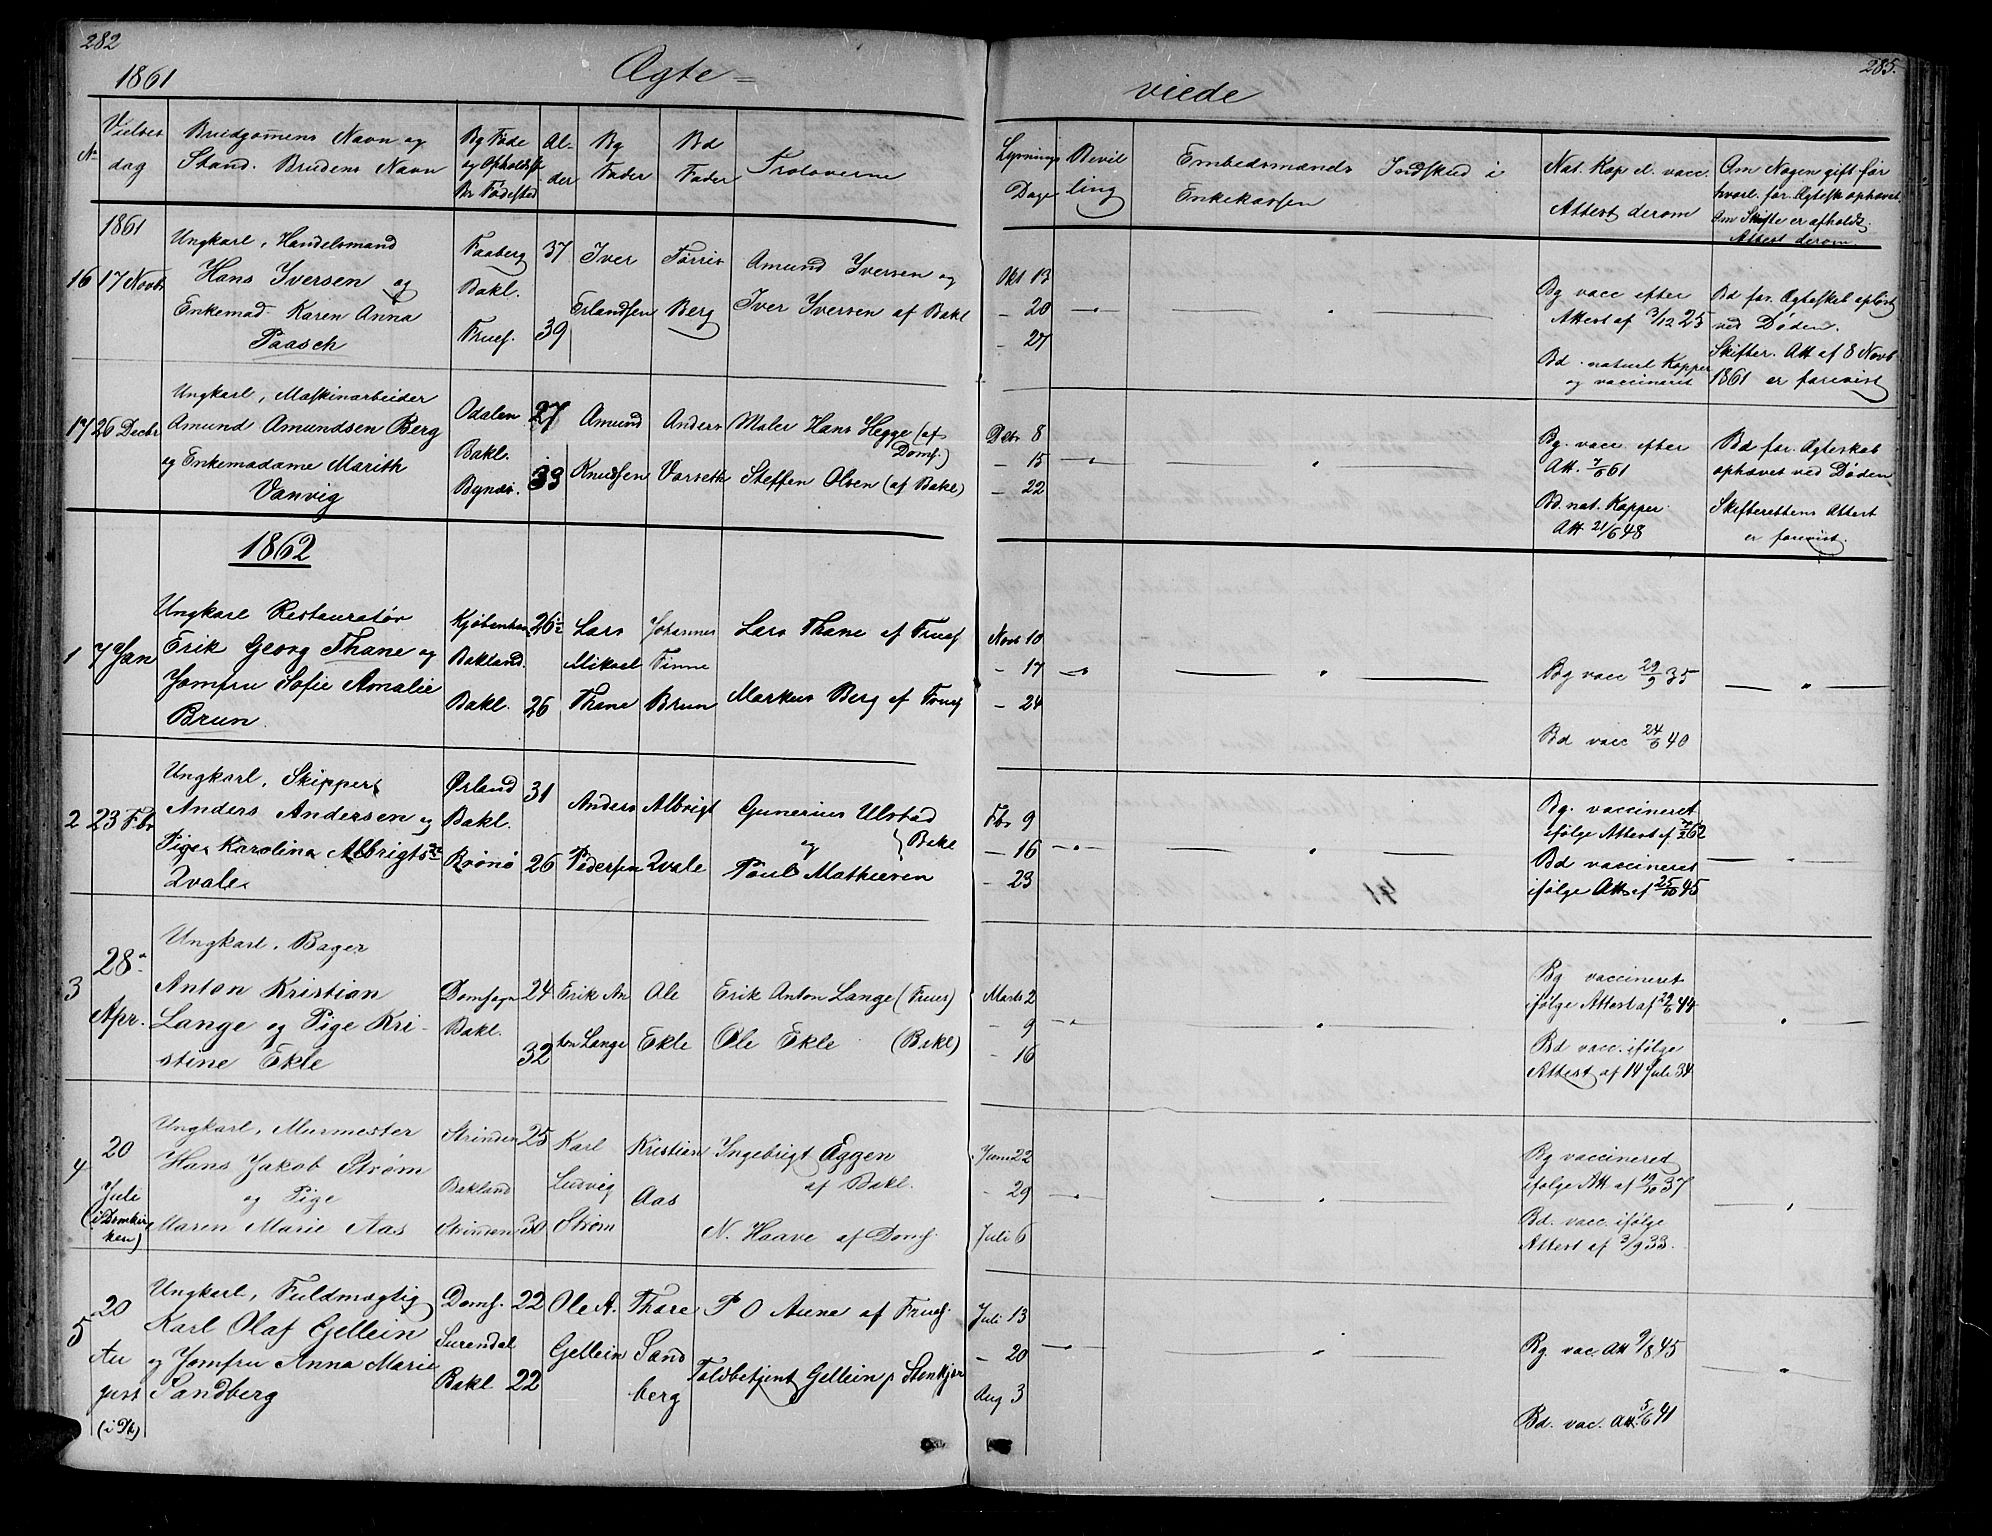 282
1861
Ægte=
No
Vielses dag
Brudgomens Navn og Stand. Brudens Navn
Bg Føde og Opholdsst Br Fødested
Alder
Bg Fader
Bd Fader
Troloverne
1861
16
17 Novbr
Ungkarl, Handelsmand
Hans Iversen og
Enkemad. Karen Anna
Paasch
Faaberg
Bakl.
Fruef.
37
39
Iver
Erlandsen
Tørris
Berg
Amund Iversen og
Iver Iversen af Bakl
17
26 Decbr
Ungkarl, Maskinarbeider
Amund Amundsen Berg
og Enkemadame Marith
Vanvig
Odalen
Bakl.
Bynæs.
27
33
Amund
Knudsen
Anders
Varseth
Maler Hans Hegge (af
Domf)
Steffen Olsen (af Bakl)
1862
1
7 Jan
Ungkarl Restauratør
Erik Georg Thane og
Jomfru Sofie Amalie
Brun.
Kjøbenhavn
Bakland.
Bakl.
26
26
Lars
Mikael
Thane
Johannes
Finne
Brun
Lars Thane af Fruef
Markus Berg af Fruef
2
23 Fbr
Ungkarl, Skipper
Anders Andersen og
Pige Karolina Albrigtsdr
Qvale
Ørland
Bakl.
Brønø
31
26
Anders
Pedersen
Albrigt
Qvale
Gunerius Ulstad
og
Bakl
Poul Mathiesen
3
28
Apr.
Ungkarl, Bager
Anton Kristian
Lange og Pige Kri-
stine Ekle
Domsogn
Bakl.
24
32
Erik An
ton Lange
Ole
Ekle
Erik Anton Lange (Frues)
Ole Ekle (Bakl)
4
20
Juli
(i Domkir
ken)
Ungkarl, Murmester
Hans Jakob Strøm
og Pige
Maren Marie Aas
Strinden
Bakland
Strinden
25
30
Karl
Ludvig
Strøm
Kristian
Aas
Ingebrigt Eggen
af Bakl.
N. Haave af Domf.
5
20
Au
gust
Ungkarl, Fuldmægtig
Karl Olaf Gellein
og Jomfru Anna Marie
Sandberg
Domf.
Surendal
Bakl
22
22
Ole A.
Gellein
Thore
Sand
berg
P O Aune af Fruef.
Toldbetjent Gellein p Stenkjær
285.
viede
Lysnings Dage
Bevilling
Embedsmænds Indskud i Enkekassen
Nat. Kop. el. vacc. Attest derom
Om Nogen gift før
hvorl. for. Ægtesk. ophævet.
Om Skifte er afholdt
Attest derom.
Okt 13
- 20
- 27
Bg vacc efter
Attest af 3/12 25
Bd. naturl Kopper
og vaccineret
Bd for. Ægteskab opløst
ved Døden.
Skifter. Att af 8 Novb
1861 er forevist
Dcbr 8
- 15
- 22
Bg. vacc. efter
Att. 7/6 61
Bd. nat. Kopper
Att 21/6 48
Bd for. Ægteskab
ophævet ved Døden
Skifterettens Attest
er forevist.
Novb 10
- 17
- 24
Bg vacc 29/9 35
Bd vacc 24/6 40
Fbr 9
- 16
- 23
41
Bg. vaccineret
ifølge Attest af 7/2 62
Bd vaccineret
ifølge Att af 25/10 45
Marts 2
- 9
- 16
Bg vaccineret
ifølge Attest af 29/6 44
Bd vacc. ifølge
Attest af 14 Juli 34
Juni 22
- 29
Juli 6
Bg vaccineret
ifølge Att af 19/10 37
Bd. vacc. ifølge
Attest af 3/9 33.
Juli 13
- 20
Aug 3
Bg. vac. Att 9/8 45
Bd. vac. Att. 5/6 41